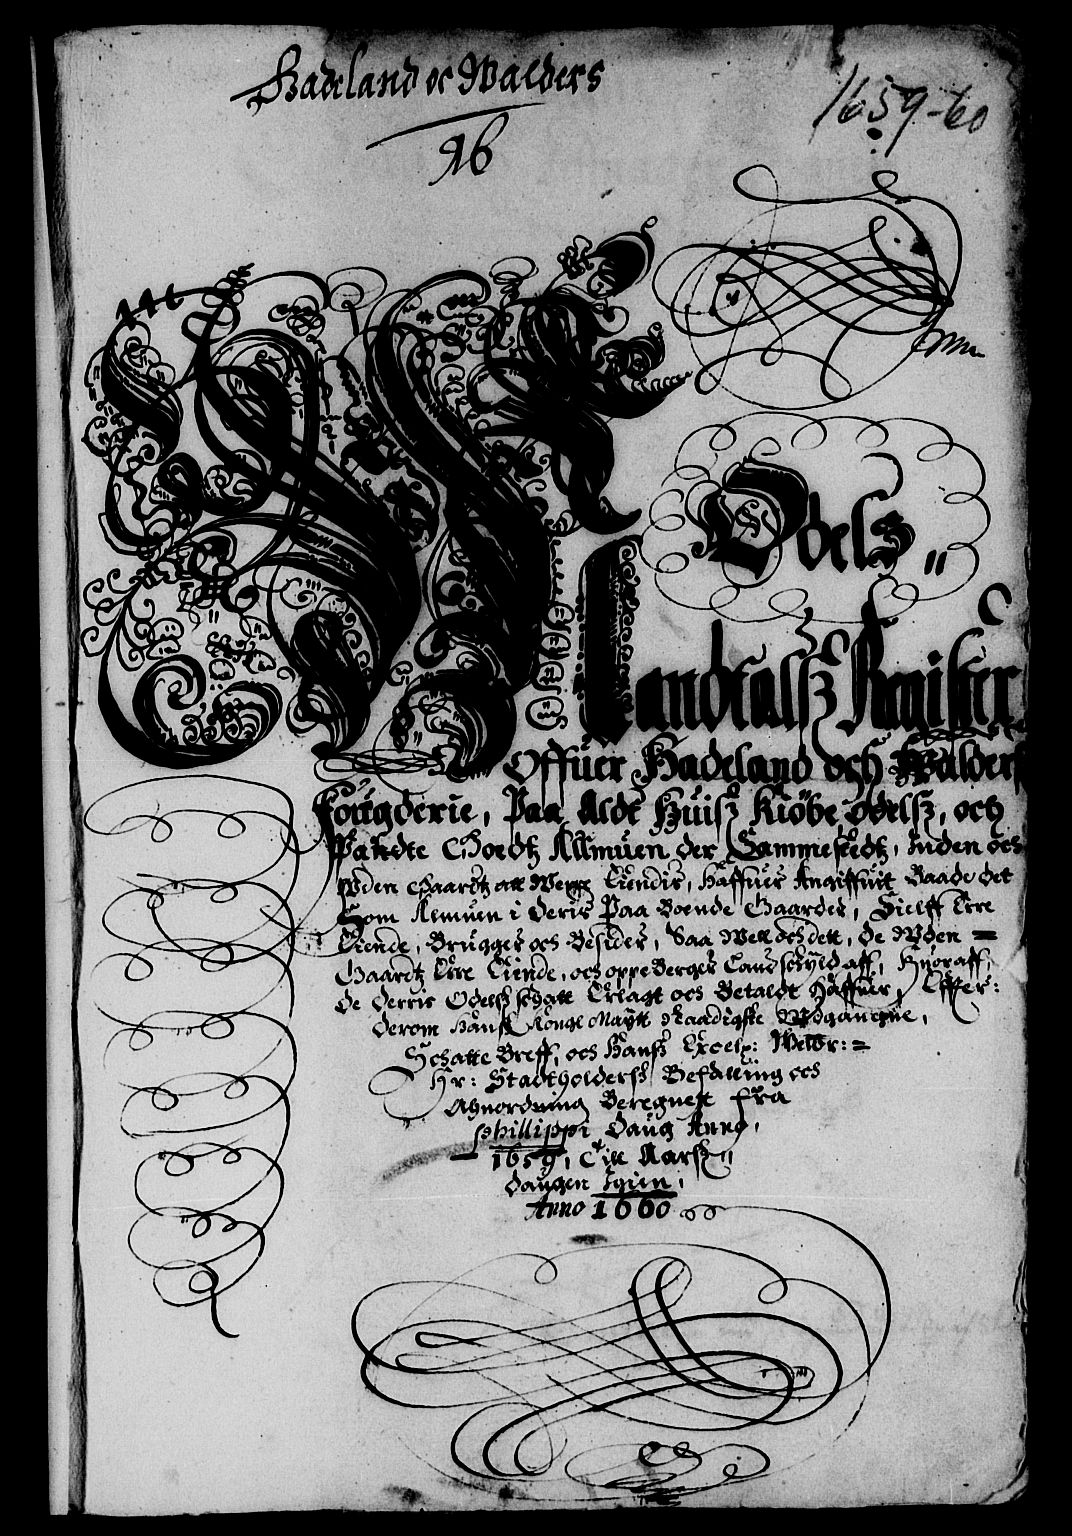 Hadeland oc Walders
1659-60
16
Odels
Mandtalsz Register
Offuer Hadeland och Walders
Fougderie, Paa Aldt Huisz Kiøbe Odelsz, och
Pandte Goedtz Allmuen der Sammestedtz, Inden och
Vden Gaardtz att Were Eiendis, Haffuer Angiffuit Baade det
Som Almuen i deris Paa Boende Gaarder, Sielff Erre
Eiende, Brugger och Besider, Saa Well och dett, de Vden
Gaardtz Erre Eiende, och oppeberger Landschyld aff, Huor aff,
de derris Odelsz schatt Erlagt och Betaldt Haffuer, Effter:
derom Hansz Kongl Maytt Naadigste Vdgangne,
Schatte Breff, och Hansz Excel: Welbr:
Hr: Stadtholdersz Befalling och
Ahnordning Beregnest fra
Phillippi Daug Anno,
1659, Till Aarsz
daugen Igien,
Anno 1660